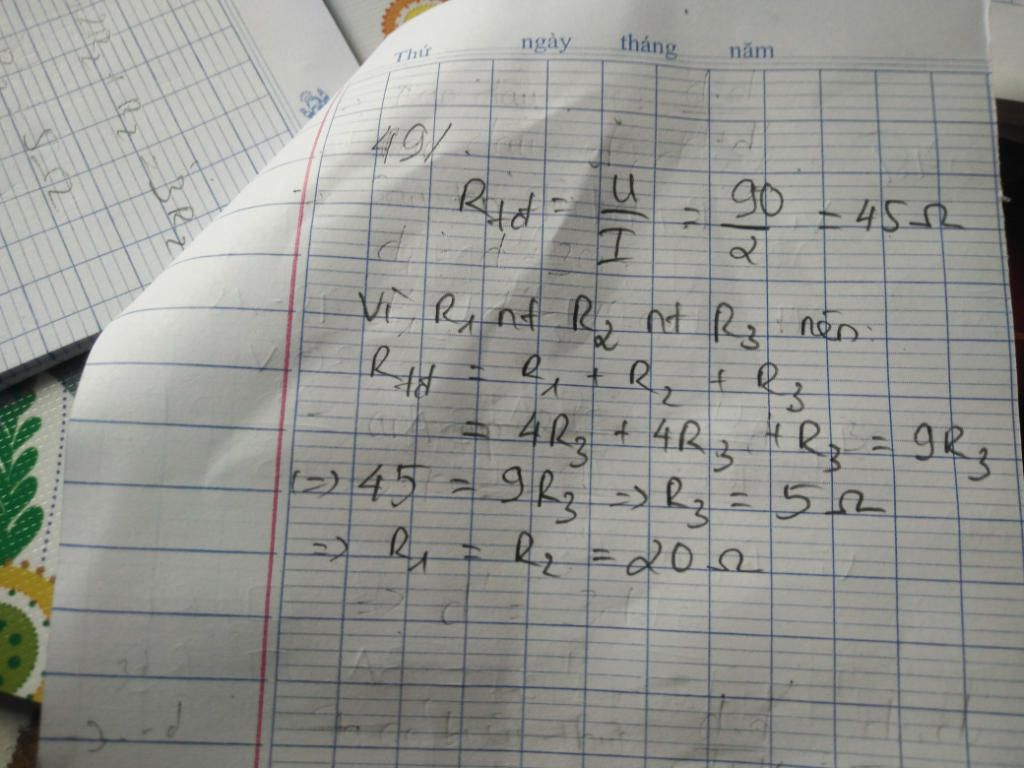 Thứ ngày tháng năm
49/
Rtđ = U/I = 90/2 = 45 Ω
Vì R1 nt R2 nt R3 nên:
Rtđ = R1 + R2 + R3
= 4R3 + 4R3 + R3 = 9R3
(=) 45 = 9R3 => R3 = 5 Ω
=> R1 = R2 = 20 Ω